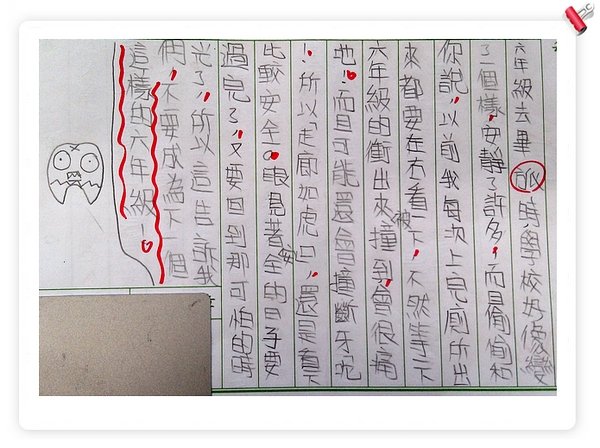 六年級去畢旅時，學校好像變
了一個樣，安靜了許多，而且偷偷和
你說，以前我每次上完廁所出
來都要在右看一下，不然等一下
六年級的衝出來被撞到，會很痛
地！而且可能還會撞斷牙呢
！所以走廊如虎口，還是看一下
比較安全。眼見著安全的日子要
過完了，又要回到那可怕的時
光了，所以這告訴我
們，不要成為下一個
這樣的六年級！